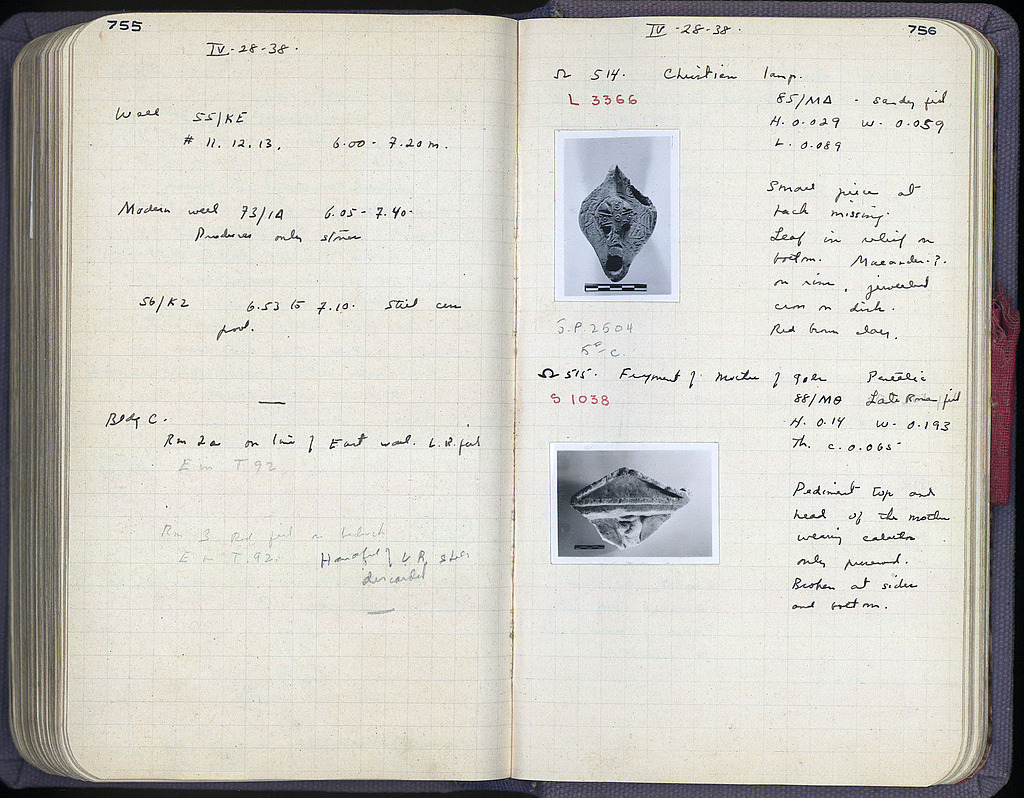 755
IV-28-38.
Well 55/KE
# 11. 12. 13. 6.00 - 7.20 m.
Modern well 73/ΙΔ 6.05 - 7.40.
Produces only stones
56/KZ 6.53 to 7.10. Still
Bldg C.
Rm 2a on line of East wall. L.R. fill
E m T 92
Rm 3 Red fill on
E m T. 92. Handful of L R sherds
discarded
756
IV-28-38.
Ω 514. Christian lamp.
L 3366
85/ΜΔ - sandy fill
H. 0.029 W. 0.059
L. 0.089
Small piece at
back missing.
Leaf in relief on
bottom. Maeander.?
on rim, jewelled
cross on disk.
Red brown clay.
J.P. 2504
5th c.
Ω 515. Fragment of Mother of gods Pentelic
S 1038
88/ΜΘ Late Roman fill
H. 0.14 W. 0.193
Th. c. 0.065
Pediment top and
head of the mother
wearing
only preserved.
Broken at sides
and bottom.